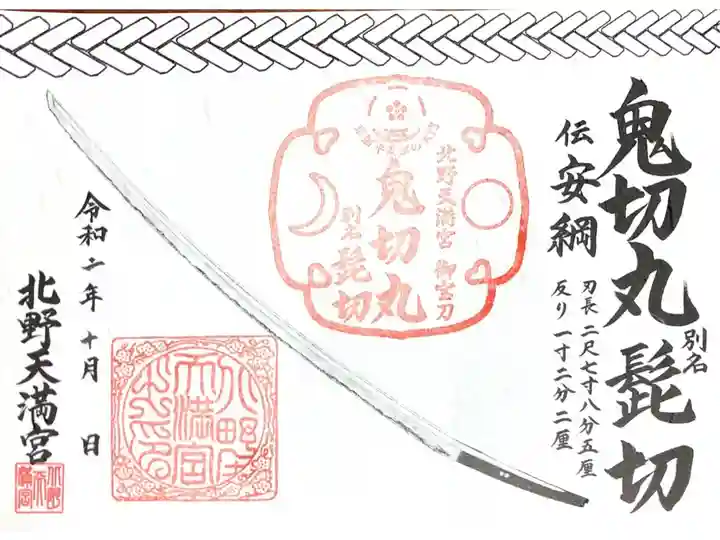 鬼切丸 別名 髭切
伝 安綱
刃長 二尺七寸八分五厘
反り 一寸二分二厘
北野天満宮 御宝刀
鬼切丸
別名 髭切
令和二年 十月 日
北野天満宮